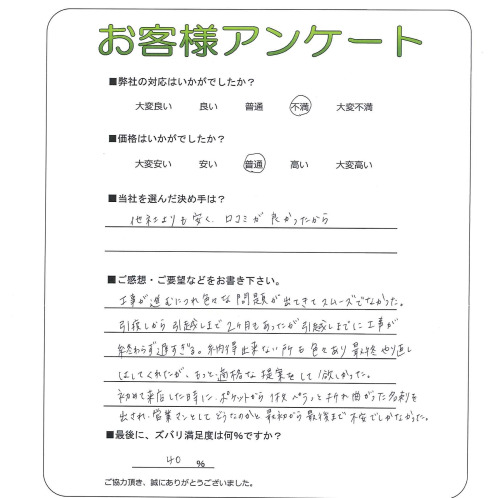 お客様アンケート
■弊社の対応はいかがでしたか？
大変良い 良い 普通 不満 大変不満
■価格はいかがでしたか？
大変安い 安い 普通 高い 大変高い
■当社を選んだ決め手は？
他社よりも安く、口コミが良かったから
■ご感想・ご要望などをお書き下さい。
工事が進むにつれ色々な問題が出てきてスムーズでなかった。
引渡しから引越しまで2ヶ月もあったが引越しまでに工事が
終わらず遅すぎる。納得出来ない所も色々あり最終やり直し
はしてくれたが、もっと適格な提案をして欲しかった。
初めて来店した時に、ポケットから1枚ペラっとチギれ曲がった名刺を
出され、営業マンとしてどうなのかと最初から最後まで不安でしかなかった。
■最後に、ズバリ満足度は何%ですか？
40 %
ご協力頂き、誠にありがとうございました。